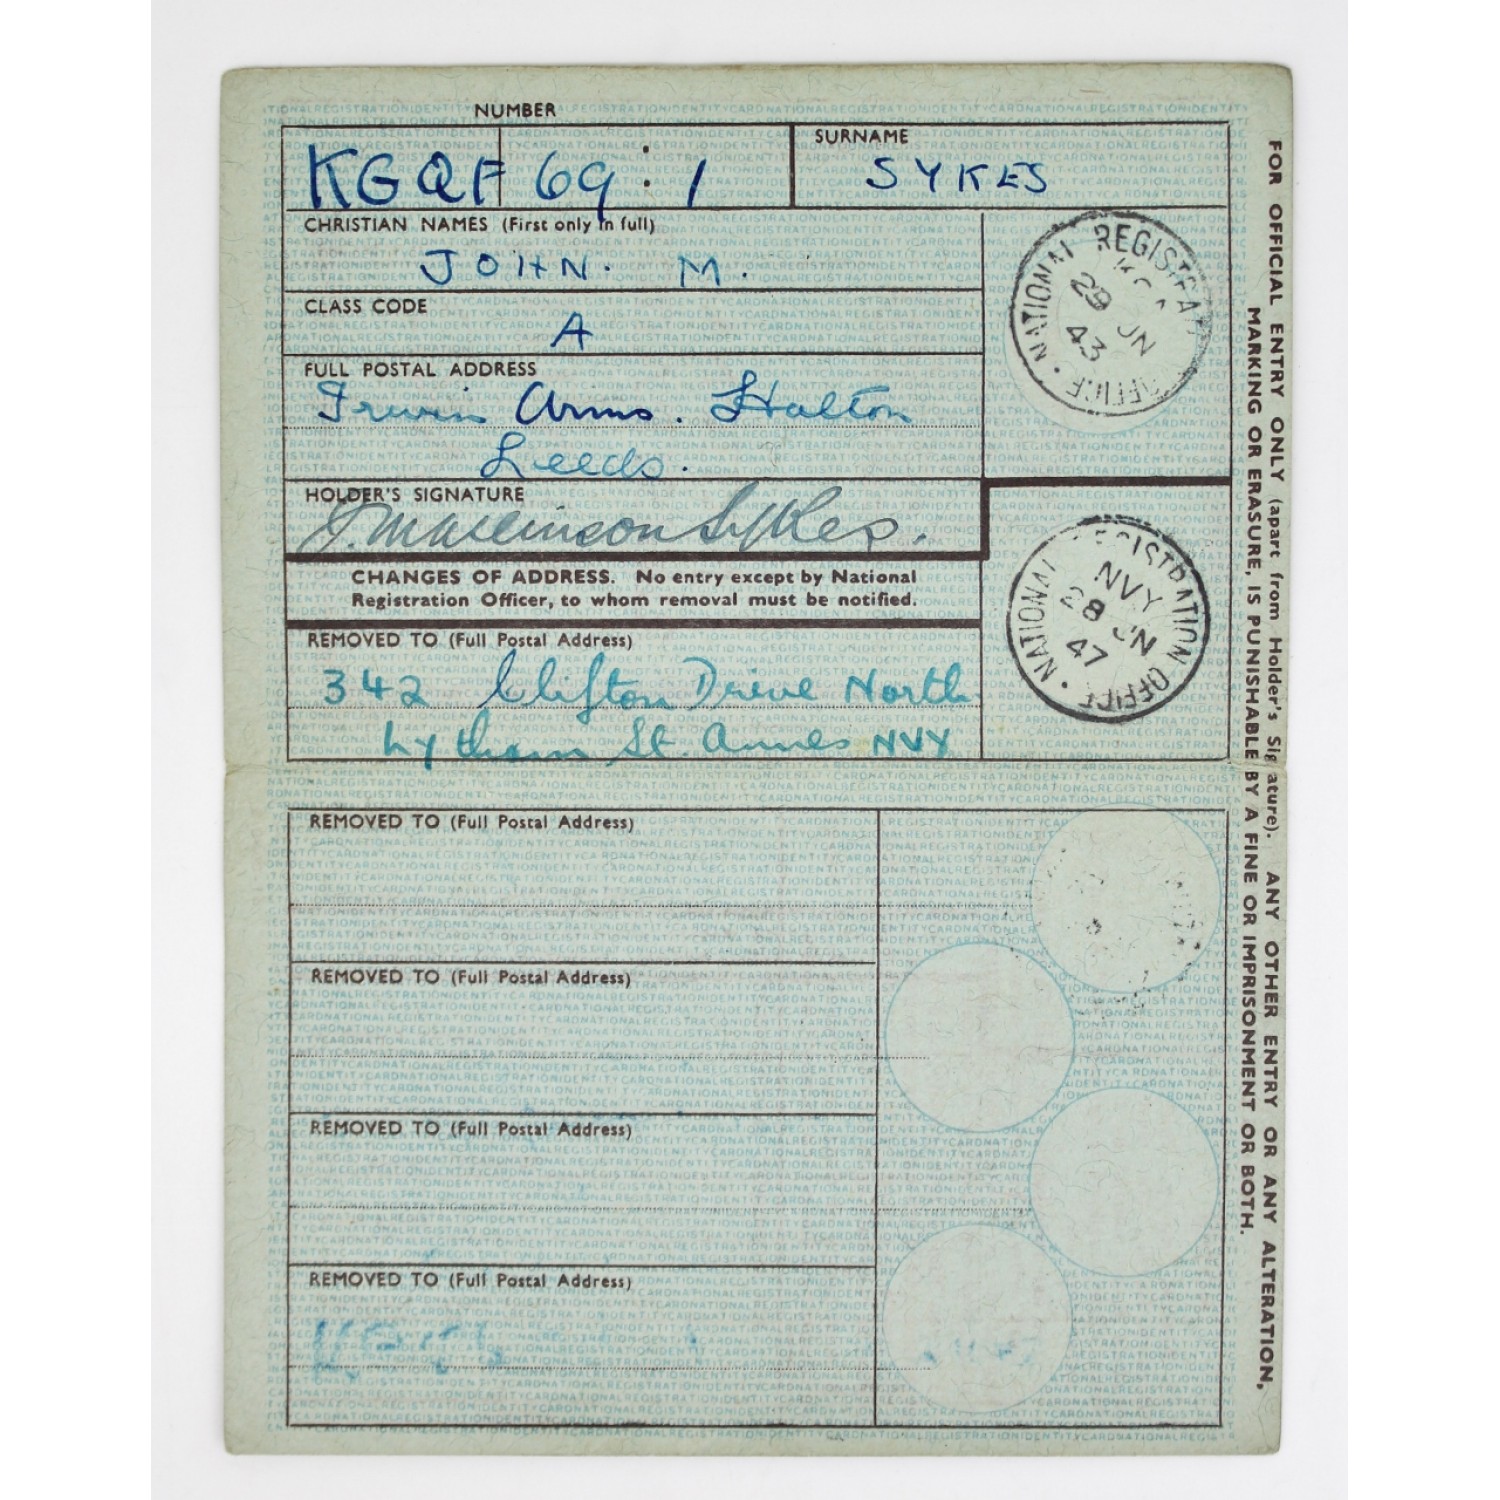 NUMBER
KGQF 69:1
SURNAME
SYKES
CHRISTIAN NAMES (First only in full)
JOHN. M.
CLASS CODE
A
FULL POSTAL ADDRESS
Irwin Arms. Halton
Leeds.
HOLDER'S SIGNATURE
J. Mallinson Sykes.
NATIONAL REGISTRAT OFFICE
29 JN
43
CHANGES OF ADDRESS. No entry except by National
Registration Officer, to whom removal must be notified.
REMOVED TO (Full Postal Address)
342 Clifton Drive North
Lytham St. Annes NVY
NATIONAL REGISTRATION OFFICE
NVY
28 JN
47
REMOVED TO (Full Postal Address)
REMOVED TO (Full Postal Address)
REMOVED TO (Full Postal Address)
REMOVED TO (Full Postal Address)
FOR OFFICIAL ENTRY ONLY (apart from Holder's Signature). ANY OTHER ENTRY OR ANY ALTERATION,
MARKING OR ERASURE, IS PUNISHABLE BY A FINE OR IMPRISONMENT OR BOTH.